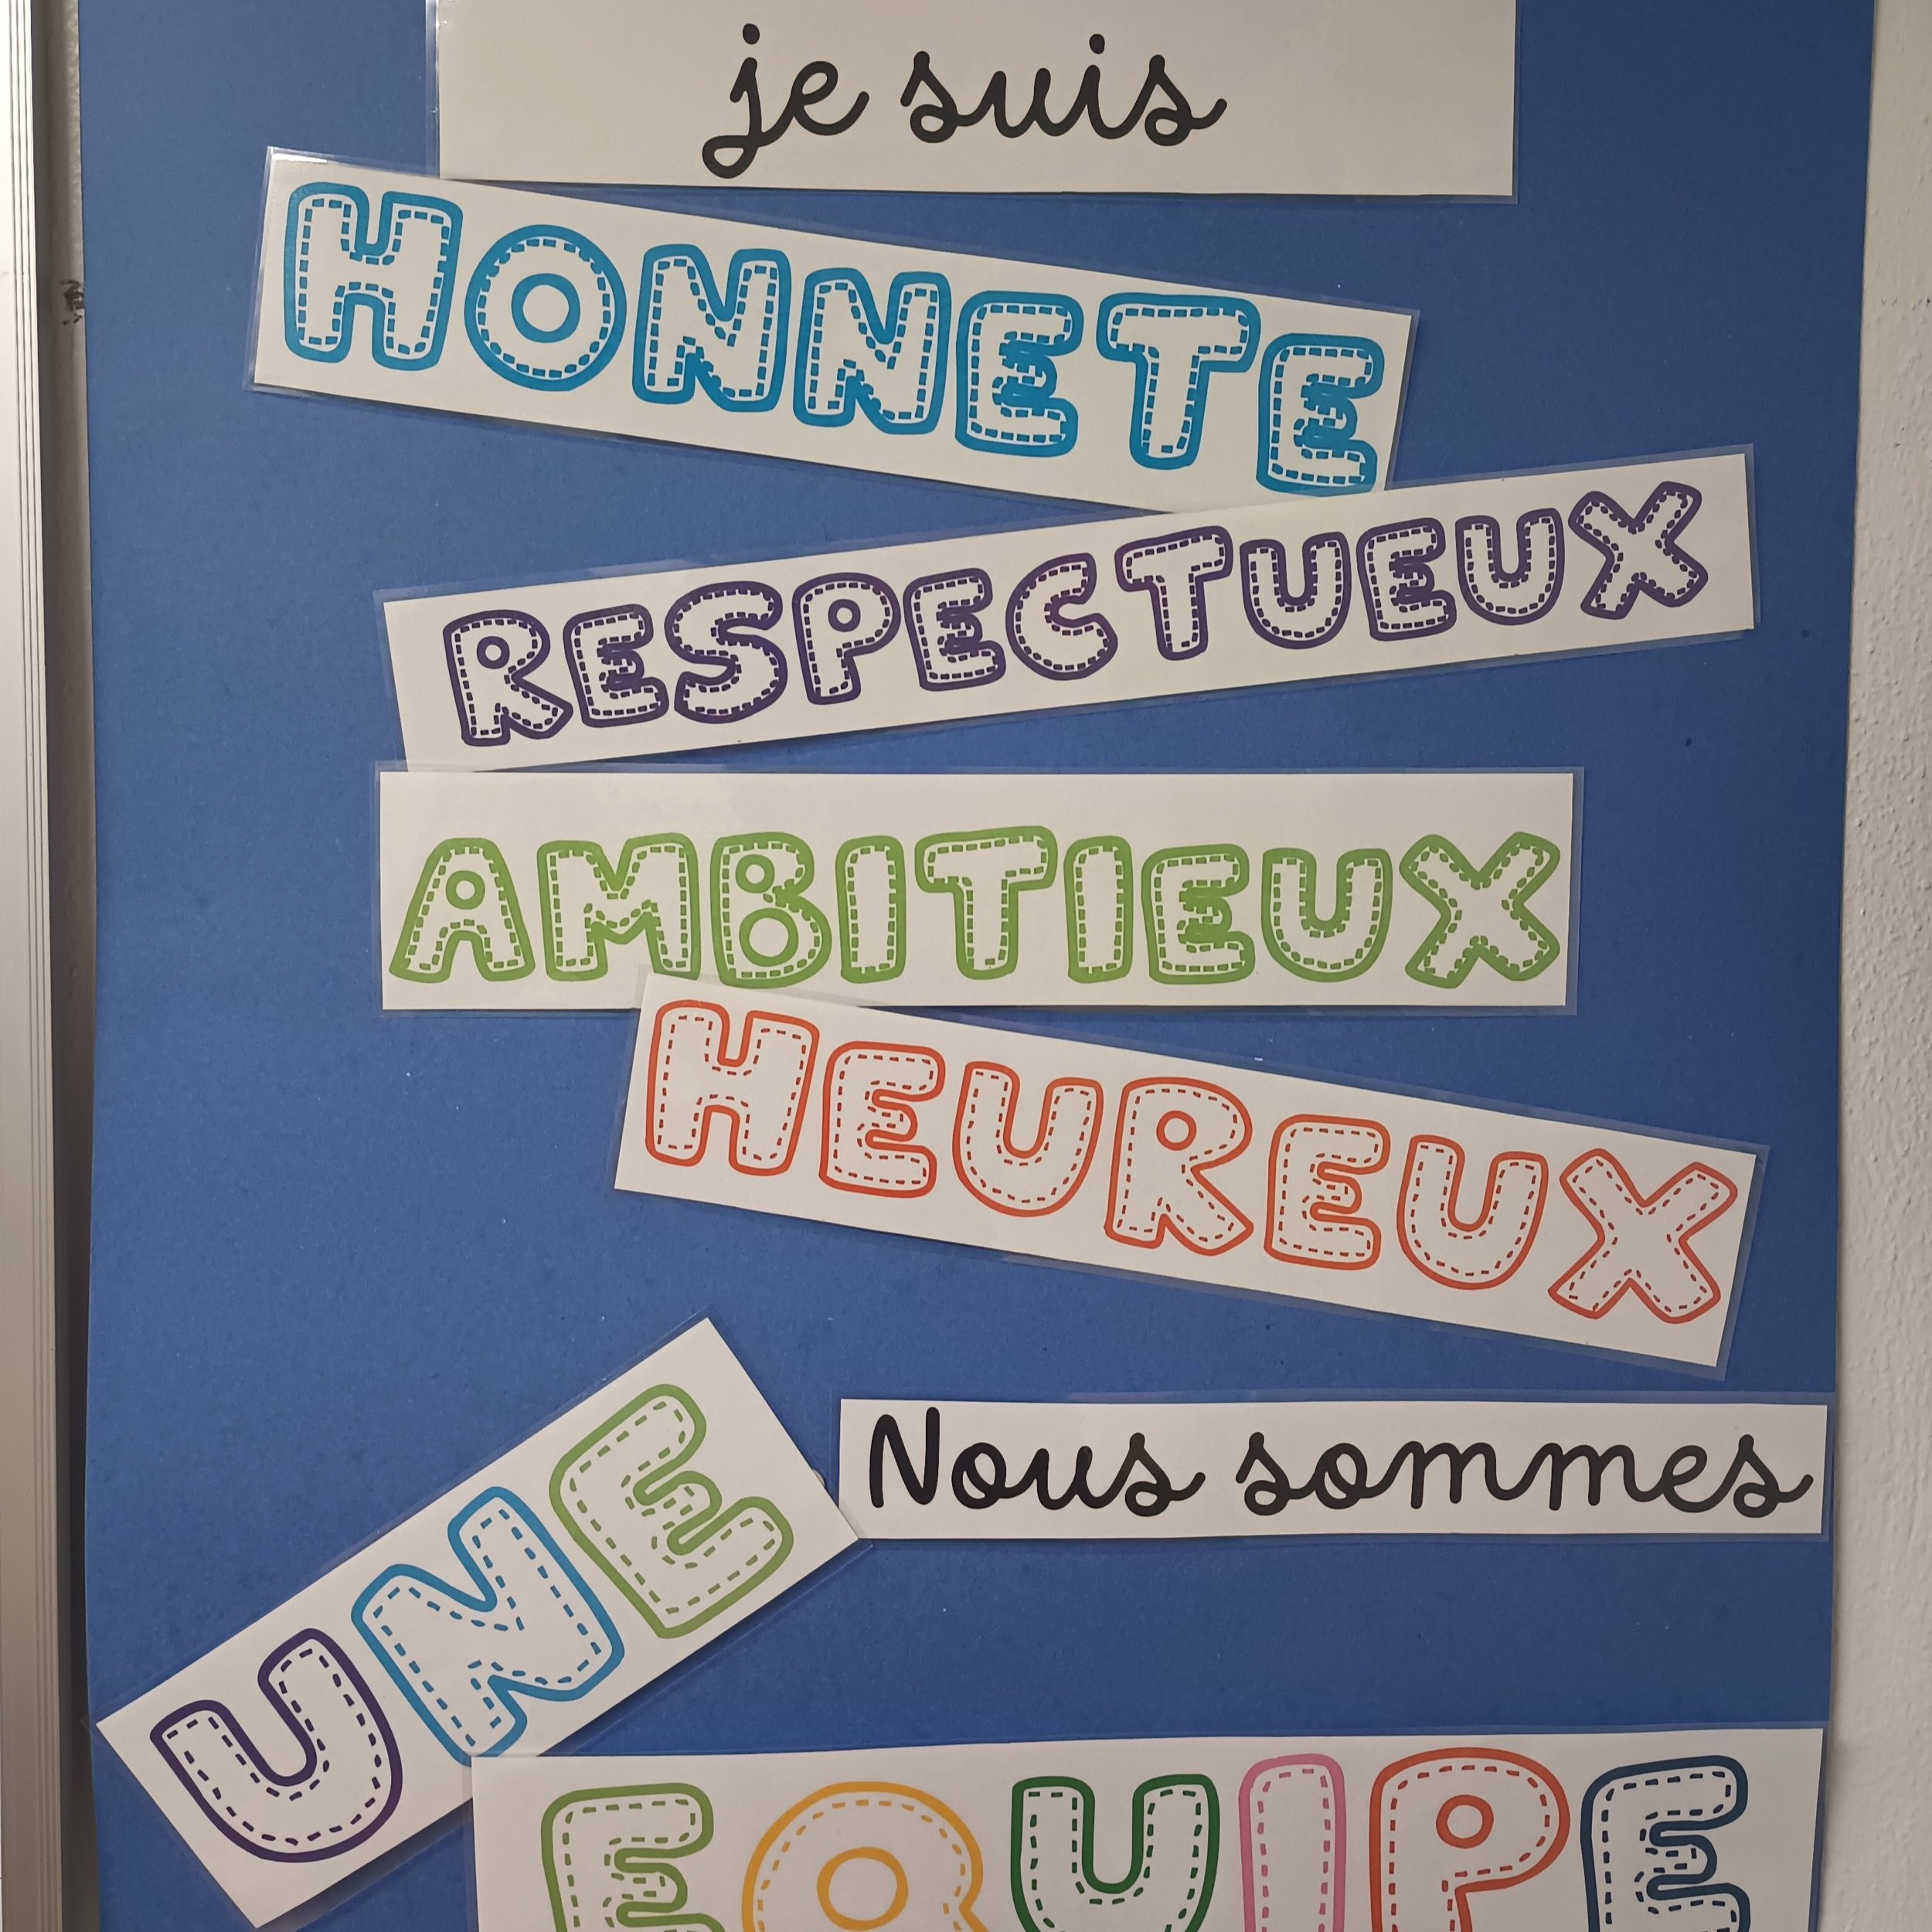 je suis
HONNETE
RESPECTUEUX
AMBITIEUX
HEUREUX
Nous sommes
UNE
EQUIPE